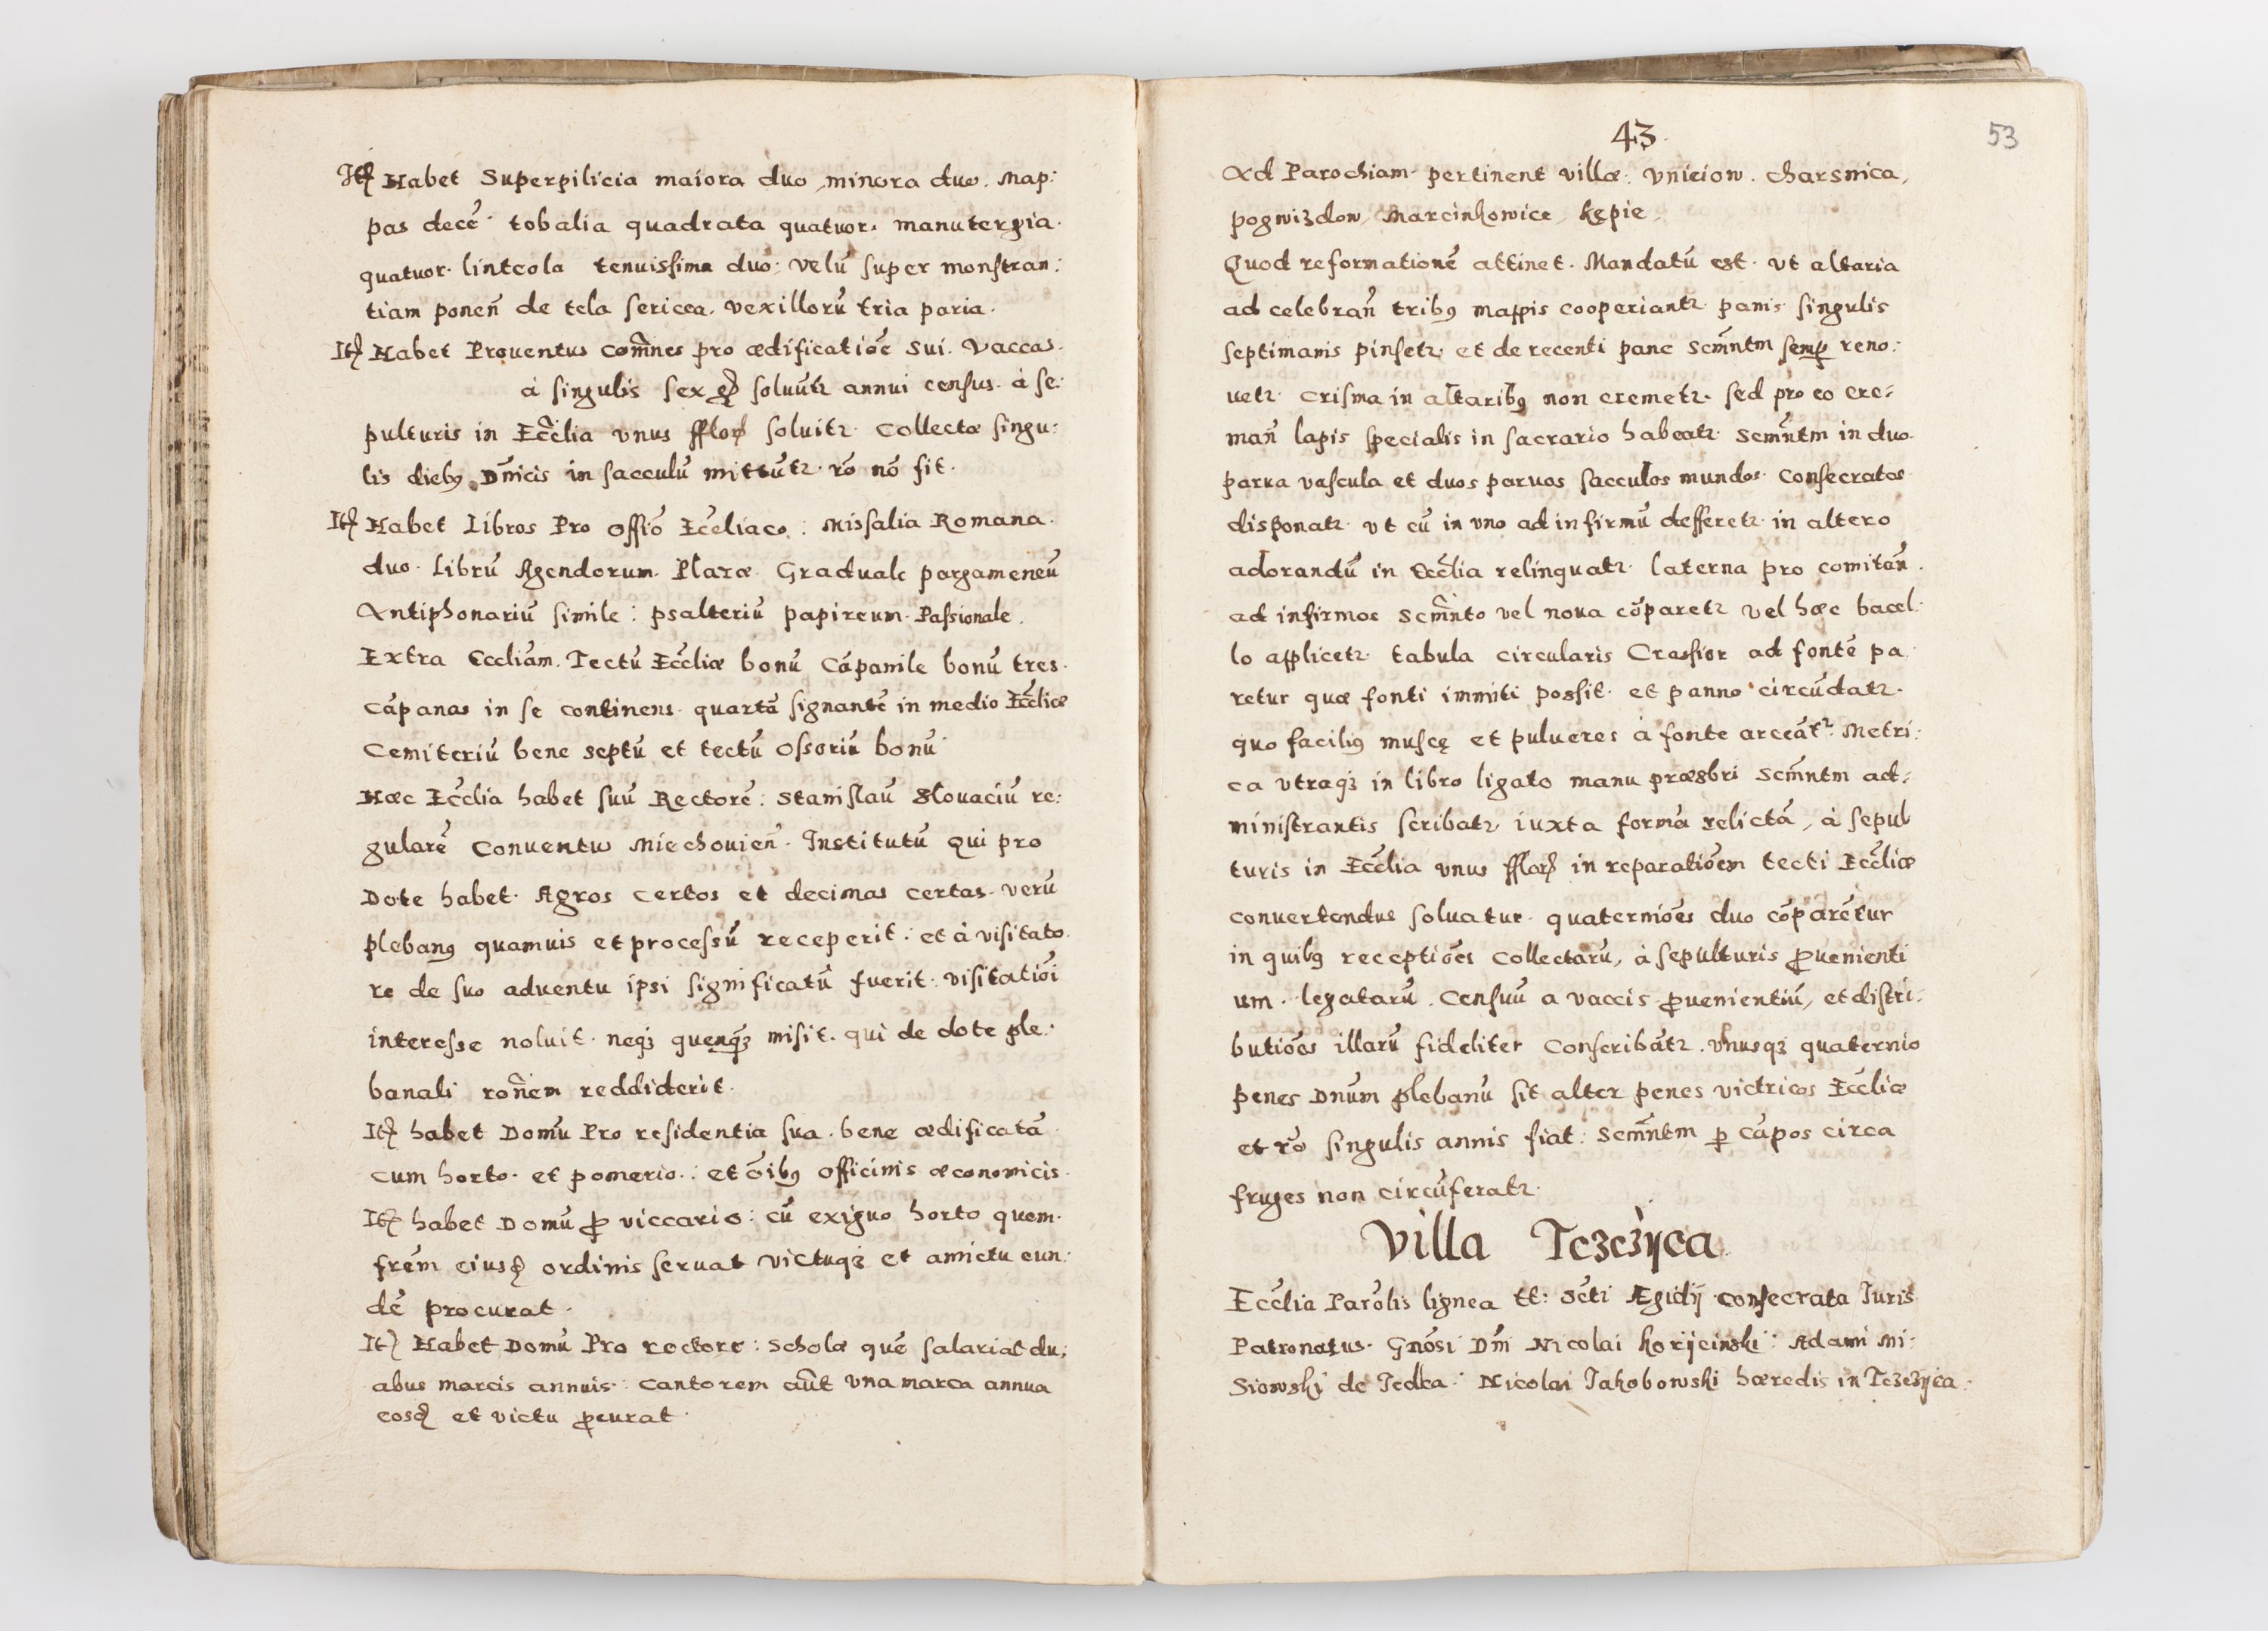 Itē Habet Superpilicia maiora duo, minora duo. Map:
pas decē tobalia quadrata quatuor. manutergia.
quatuor. linteola tenuissima duo: velū super monstran:
tiam ponen̄ de tela sericea. vexillorū tria paria.
Itē Habet Prouentus com̄nes pro ædificatiōe sui. Vaccas.
à singulis sex soluūtr annui census. à se:
pulturis in Eccl̄ia vnus fflor̄ soluitr. Collectæ singu:
lis diebꝯ Dn̄icis in sacculū mittūtr. rō nō fit.
Itē Habet Libros Pro offiō Eccl̄iaco: Missalia Romana.
duo. Librū Agendorum. Graduale pargameneū
Antiphonariū simile: psalteriū papireum. Passionale.
Extra Eccliām. Tectū Eccl̄iæ bonū Cāpanile bonū tres.
cāpanas in se continens. quartā signantē in medio Eccl̄iæ
Cemiteriū bene septū et tectū ossoriū bonū
Hæc Eccl̄ia habet suū Rectorē: Stanislaū Slouaciū re:
gularē Conuentus Miechouien̄. Institutū Qui pro
Dote habet. Agros certos et decimas certas. verū
plebanꝯ quamuis et processū receperit: et à visitato.
re de suo aduentu ipsi significatū fuerit. visitatiōi
interesse noluit. neqꝫ quenqꝫ misit. qui de dote ple:
banali ron̄em reddiderit.
Itē habet Domū Pro residentia sua. bene ædificatā.
cum horto. et pomerio.: et ōibꝯ officinis œconomicis.
Itē habet Domū ꝓ viccario: cū exiguo horto quem.
frēm eiusꝗ ordinis seruat victuqꝫ et amictu eun:
dē procurat.
Itē Habet Domū Pro rectore: Scholæ quē salariat du:
abus marcis annuis: Cantorem aūt vna marca annua
eosꝗ et victu ꝓcurat.
43.
53
Ad Parochiam. pertinent villæ: Vnieiow. Charsnica,
pogwizdow, Marcinkowice, Kępie.
Quod reformationē attinet. Mandatū est. vt altaria
ad celebran̄ tribꝯ mappis cooperiantr. panis singulis
septimanis pinsetr, et de recenti pane Scm̄ntm semꝑ reno:
uetr. Crisma in altaribꝯ non cremetr. sed pro eo cre:
man̄ lapis specialis in sacrario habeatr. Scm̄ntm in duo.
parua vascula et duos paruos sacculos mundos. Consecratos.
disponatr. vt cū in vno ad infirmū defferetr. in altero
adorandū in Eccl̄ia relinquatr. laterna pro comitan̄.
ad infirmos Scm̄nto vel noua cōparetr vel hæc bacel:
lo applicetr. tabula circularis Crassior ad fontē pa.
retur quæ fonti immiti possit. et panno circūdatr.
quo faciliꝯ muscę et pulueres à fonte arceātr. Metri:
ca vtraqꝫ in libro ligato manu præsbri Scm̄ntm ad:
ministrantis scribatr, iuxta formā relictā, à sepul
turis in Eccl̄ia vnus fflor̄ in reparatiōem tecti Eccl̄iæ
conuertendus soluatur. quaterniōes duo cōparētur
in quibꝯ receptiōes Collectarū, à sepulturis ꝓuenienti
um. legatarū. Censuū a vaccis ꝓuenientiū, et distri:
butiōes illarū fideliter Conscribātr. vnusqꝫ quaternio
penes Dnūm plebanū sit alter penes victricos Eccl̄iæ
et rō singulis annis fiat: Scm̄ntm ꝑ cāpos circa
fruges non circūferatr.
Villa Tczcżyca.
Eccl̄ia Parōlis lignea tt: Sc̄ti Ægidij consecrata Iuris
Patronatus. Gnōsi Dn̄i Nicolai Koryciński: Adami Mi:
siowski de Nicolai Jakobowski hæredis in Tczczyca.